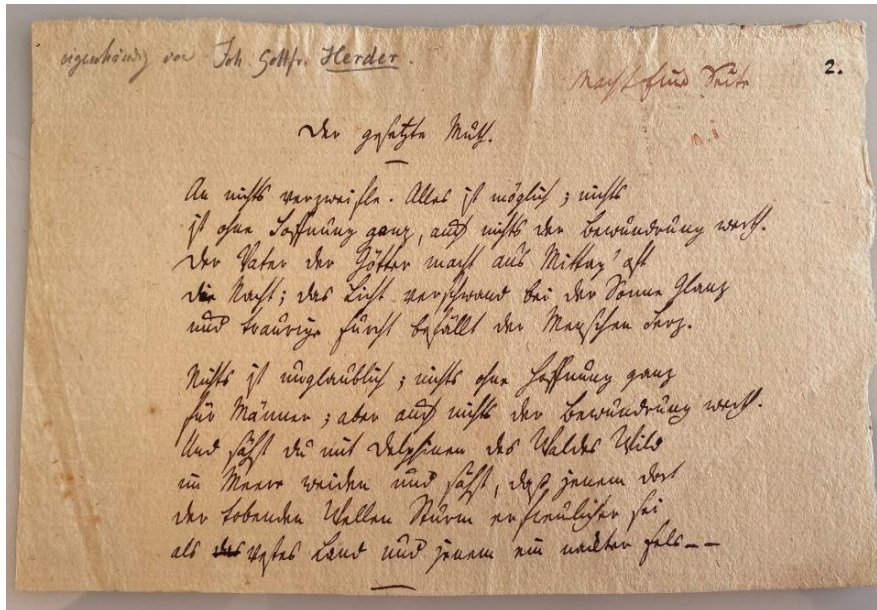 eigenhändig von Joh. Gottfr. Herder.
macht eine Seite
2.
n. i
Der gesetzte Muth.
An nichts verzweifle. Alles ist möglich; nichts
ist ohne Hoffnung ganz, auch nichts der Bewundrung werth.
Der Vater der Götter macht aus Mittag' oft
die Nacht; das Licht verschwand bei der Sonne Glanz
und traurige Furcht befällt der Menschen Herz.
Nichts ist unglaublich; nichts ohne Hoffnung ganz
für Männer; aber auch nichts der Bewundrung werth.
Und sähst du mit Delphinen des Waldes Wild
im Meere weiden und sähst, daß jenem dort
der tobenden Wellen Sturm erfreulicher sei
als des vestes Land und jenem ein nackter Fels--